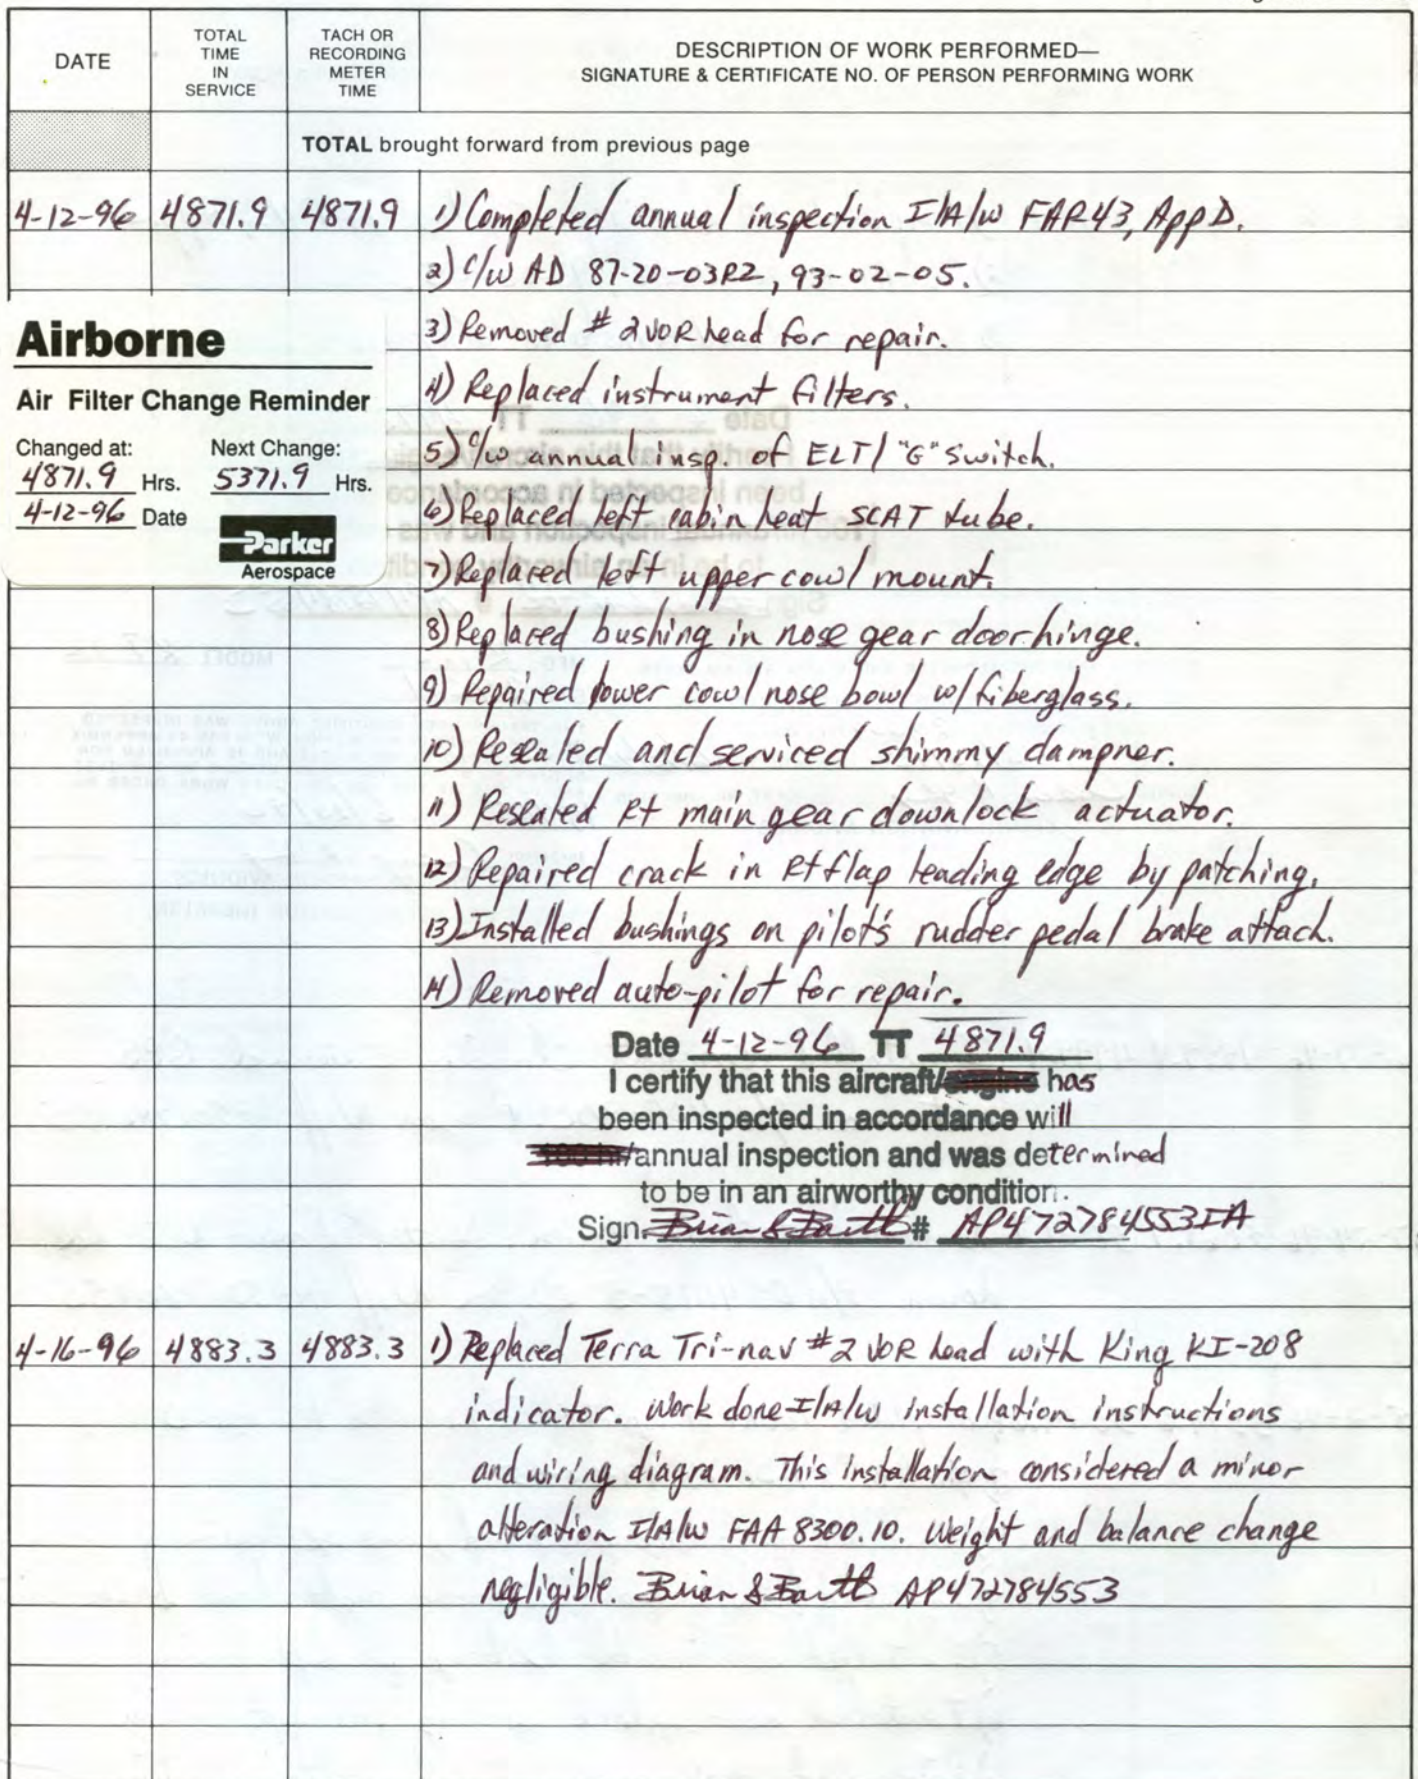 DATE
TOTAL TIME IN SERVICE
TACH OR RECORDING METER TIME
DESCRIPTION OF WORK PERFORMED—
SIGNATURE & CERTIFICATE NO. OF PERSON PERFORMING WORK
TOTAL brought forward from previous page
4-12-96 4871.9 4871.9 1) Completed annual inspection I/A/W FAR43, App D.
2) C/W AD 87-20-03R2, 93-02-05.
3) Removed #2 VOR head for repair.
4) Replaced instrument filters.
5) C/W annual insp. of ELT/"G" switch.
6) Replaced left cabin heat SCAT tube.
7) Replaced left upper cowl mount.
8) Replaced bushing in nose gear door hinge.
9) Repaired lower cowl nose bowl w/fiberglass.
10) Resealed and serviced shimmy dampner.
11) Resealed Rt main gear downlock actuator.
12) Repaired crack in Rt flap leading edge by patching.
13) Installed bushings on pilot's rudder pedal brake attach.
14) Removed auto-pilot for repair.
Airborne
Air Filter Change Reminder
Changed at: Next Change:
4871.9 Hrs. 5371.9 Hrs.
4-12-96 Date
Parker
Aerospace
Date 4-12-96 TT 4871.9
I certify that this aircraft/engine has
been inspected in accordance will
100 hr/annual inspection and was determined
to be in an airworthy condition.
Sign. Brian S Barth # AP472784553IA
4-16-96 4883.3 4883.3 1) Replaced Terra Tri-nav #2 VOR head with King KI-208
indicator. Work done I/A/W installation instructions
and wiring diagram. This installation considered a minor
alteration I/A/W FAA 8300.10. Weight and balance change
negligible. Brian S Barth AP472784553